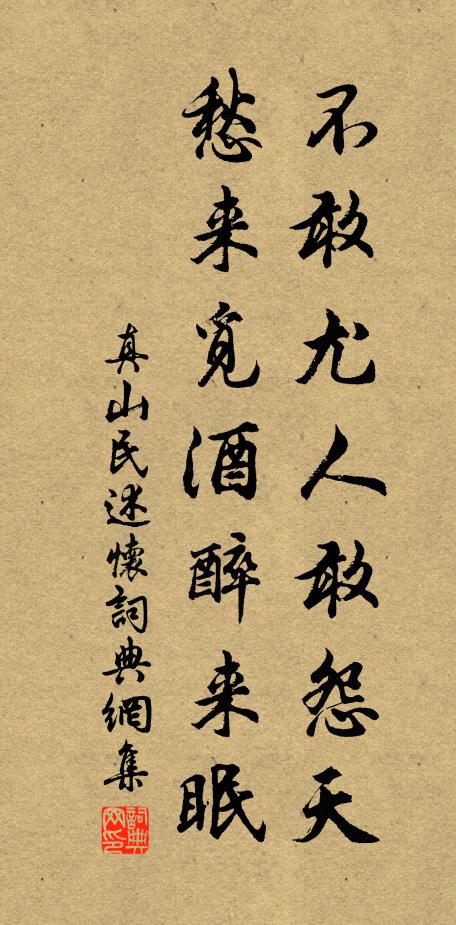 不敢尤人敢怨天
愁来觅酒醉来眠
真山民述懷詞典網集
詞典网印